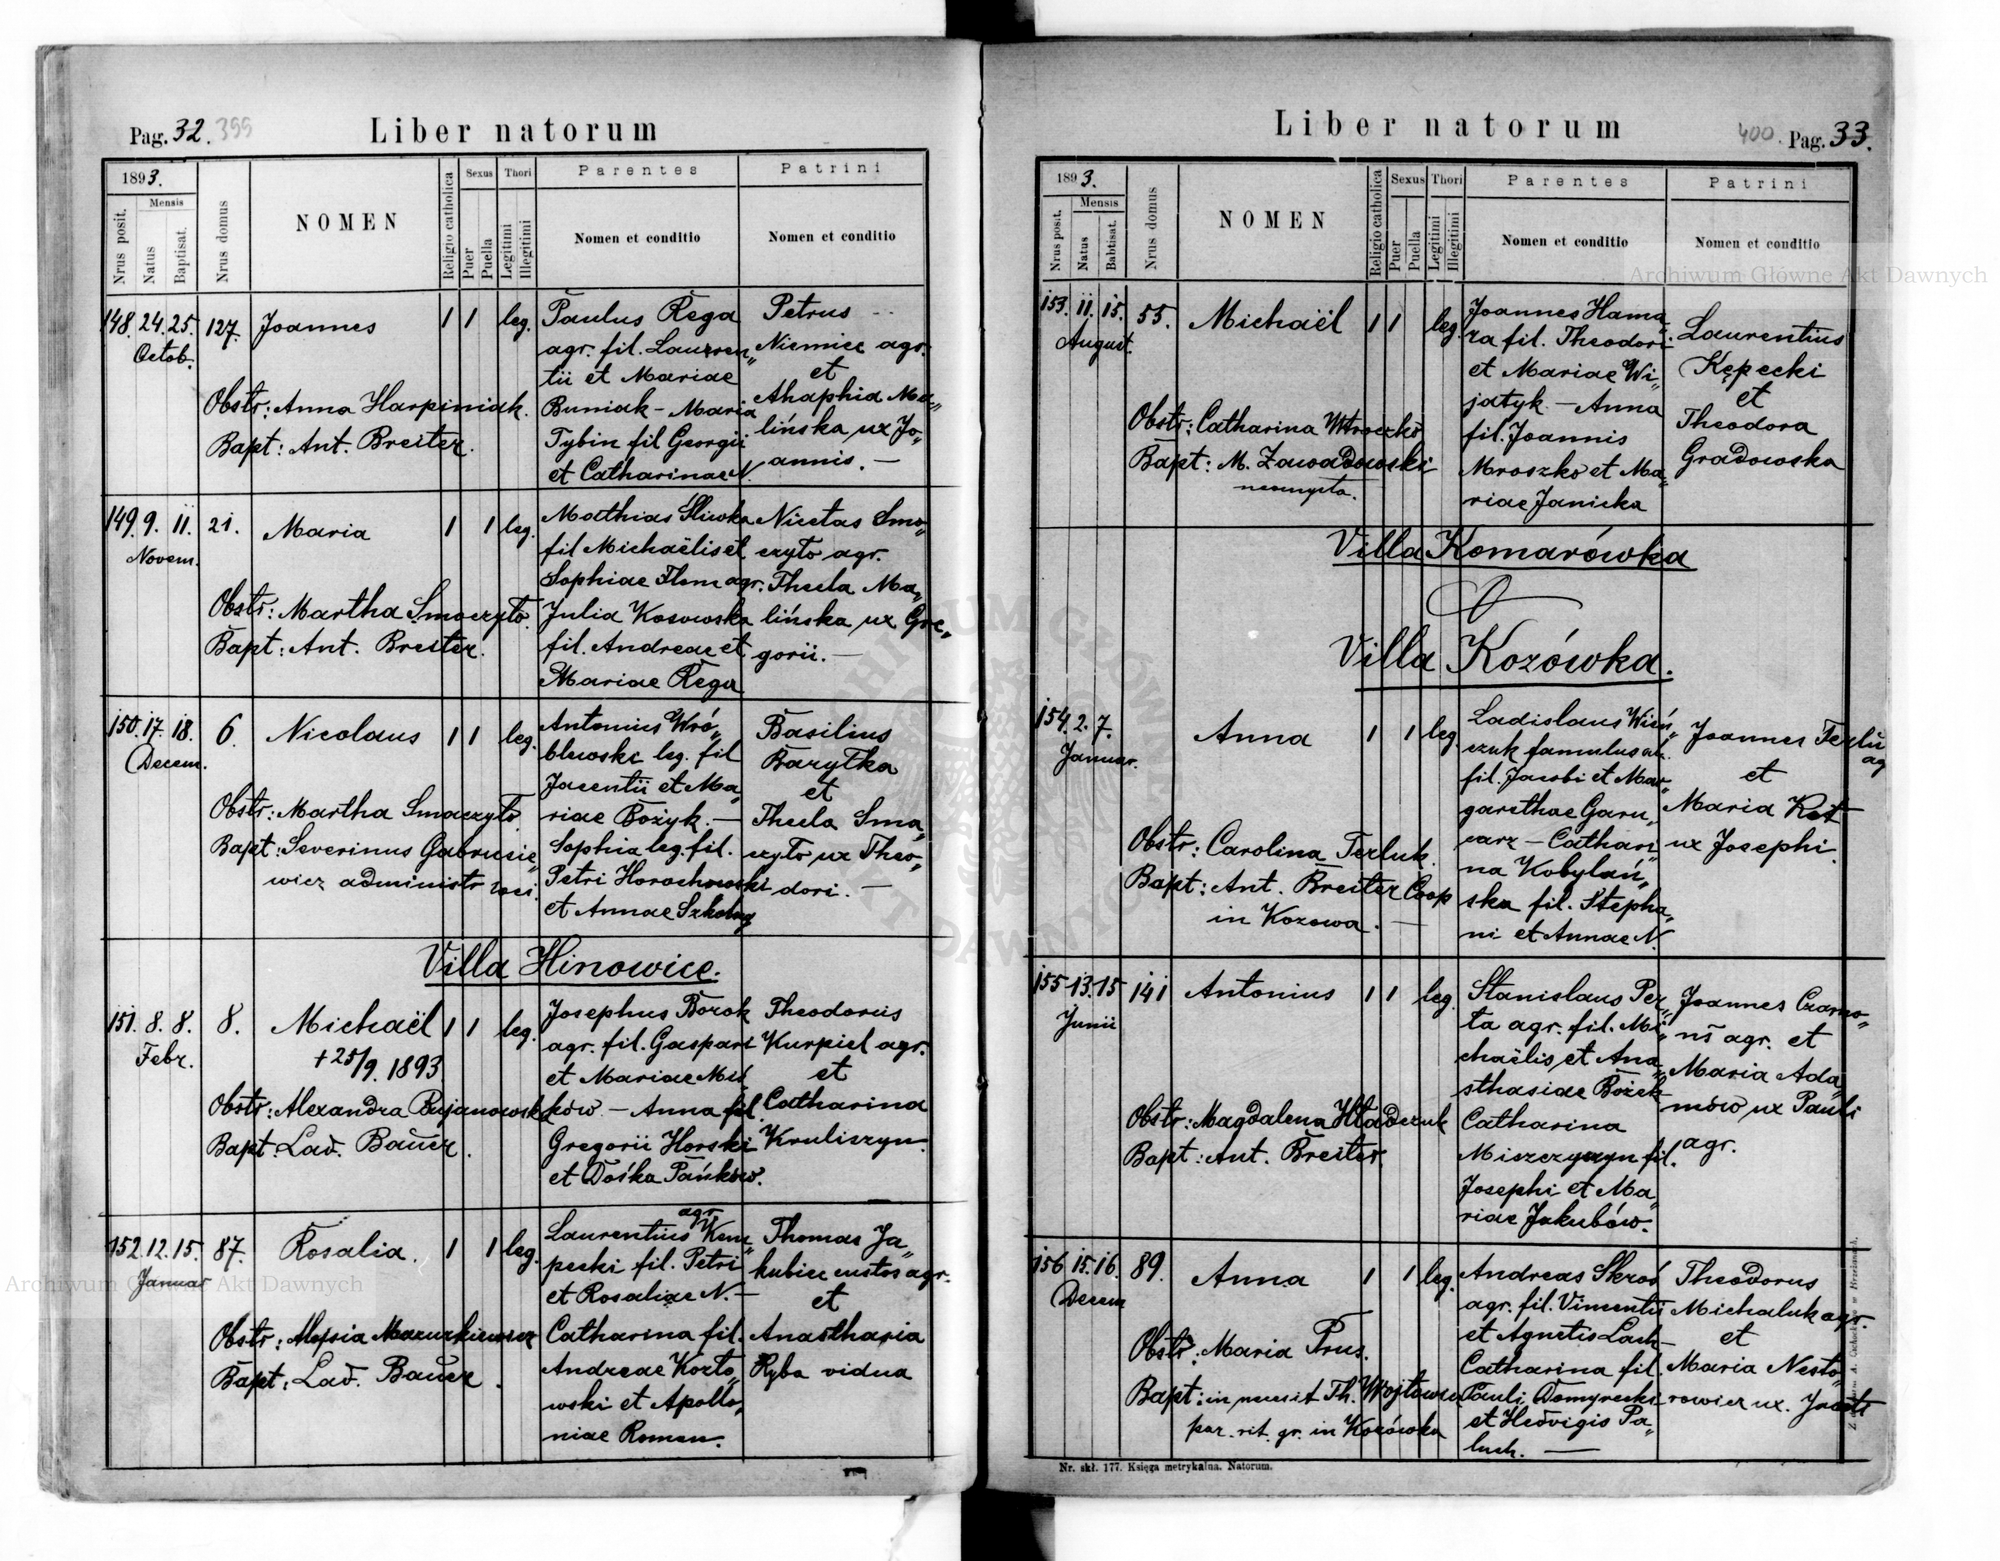 Pag. 32. 399
Liber natorum
1893.
Nrus posit.
Mensis
Natus
Baptisat.
Nrus domus
NOMEN
Religio catholica
Sexus
Puer
Puella
Thori
Legitimi
Illegitimi
Parentes
Nomen et conditio
Patrini
Nomen et conditio
148. 24. 25. 127. Joannes 1 1 leg.
Octob.
Obstr: Anna Harpiniak.
Bapt: Ant. Breiter.
Paulus Rega
agr. fil. Lauren„
tii et Mariae
Buniak - Maria
Tybin fil Georgii
et Catharinae N.
Petrus
Niemiec agr.
et
Ahaphia Ma„
lińska ux Jo„
annis. —
149. 9. 11. 21. Maria 1 1 leg.
Novem.
Obstr: Martha Smoczyto.
Bapt: Ant. Breiter.
Mathias Śliwka
fil Michaëlis et
Sophiae Flom agr.
Julia Kosowska
fil. Andreae et
Mariae Rega
Nicetas Smo„
czyto agr.
Thecla Ma„
lińska ux Gre„
gorii. —
150. 17. 18. 6. Nicolaus 1 1 leg.
Decem.
Obstr: Martha Smoczyto.
Bapt: Severinus Gabrusie„
wicz administr loci.
Antonius Wró„
blewski leg. fil
Jacentii et Ma„
riae Bożyk. —
Sophia leg. fil.
Petri Horochowski
et Annae Szkolny
Basilius
Barytka
et
Thecla Smo„
czyto ux Theo„
dori. —
Villa Hinowice.
151. 8. 8. 8. Michaël 1 1 leg.
Febr.
+ 25/9. 1893
Obstr: Alexandra Bujanowsk
Bapt: Lad. Bauer.
Josephus Borok
agr. fil. Gaspari
et Mariae Miś„
ków. - Anna fil.
Gregorii Horski
et Dośka Pańków.
Theodorus
Kurpiel agr.
et
Catharina
Kruliszyn.
152. 12. 15. 87. Rosalia. 1 1 leg.
Januar
Obstr: Aloysia Mazurkiewicz
Bapt: Lad. Bauer.
agr.
Laurentius Kem„
pecki fil. Petri
et Rosaliae N. —
Catharina fil.
Andreae Kozto„
wski et Apollo„
niae Roman.
Thomas Ja„
kubiec custos agr.
et
Anasthasia
Ryba vidua
Liber natorum
400. Pag. 33.
1893.
Nrus posit.
Mensis
Natus
Babtisat.
Nrus domus
NOMEN
Religio catholica
Sexus
Puer
Puella
Thori
Legitimi
Illegitimi
Parentes
Nomen et conditio
Patrini
Nomen et conditio
Archiwum Główne Akt Dawnych
153. 11. 15. 55. Michaël 1 1 leg.
August.
Obstr: Catharina Mroczko
Bapt: M. Zawadowski
neomysta.
Joannes Hama„
ra fil. Theodori
et Mariae Wi„
jatyk - Anna
fil. Joannis
Mroszko et Ma„
riae Janicka
Laurentius
Kępecki
et
Theodora
Gradowska
Villa Komarówka
Villa Kozówka.
154. 2. 7. Anna 1 1 leg.
Januar.
Obstr: Carolina Terluk.
Bapt: Ant. Breiter Coop
in Kozowa. —
Ladislaus Wień„
czuk famulus
fil. Jacobi et Mar„
garethae Garu„
carz - Cathari„
na Kobylań„
ska fil. Stepha„
ni et Annae N.
Joannes Terlu
ag
et
Maria Kot
ux Josephi.
155. 13. 15 141 Antonius 1 1 leg.
Junii
Obstr: Magdalena Hładczuk
Bapt: Ant. Breiter.
Stanislaus Per„
ta agr. fil. Mi„
chaëlis et Ana„
sthasiae Bożek
Catharina
Miszczyszyn fil.
Josephi et Ma„
riae Jakubów.
Joannes Czarno„
uś agr. et
Maria Ada„
mów ux Pauli
agr.
156 15. 16. 89. Anna 1 1 leg.
Decem
Obstr: Maria Prus.
Bapt: in necesit Th. Wojtowicz
par. rit. gr. in Kozówka
Andreas Skroś
agr. fil. Vincentii
et Agnetis Lach —
Catharina fil.
Pauli Domyrecki
et Hedvigis Pa„
luch. —
Theodorus
Michaluk agr.
et
Maria Nesto„
rowicz ux.
Nr. skł. 177. Księga metrykalna. Natorum.
Archiwum Główne Akt Dawnych